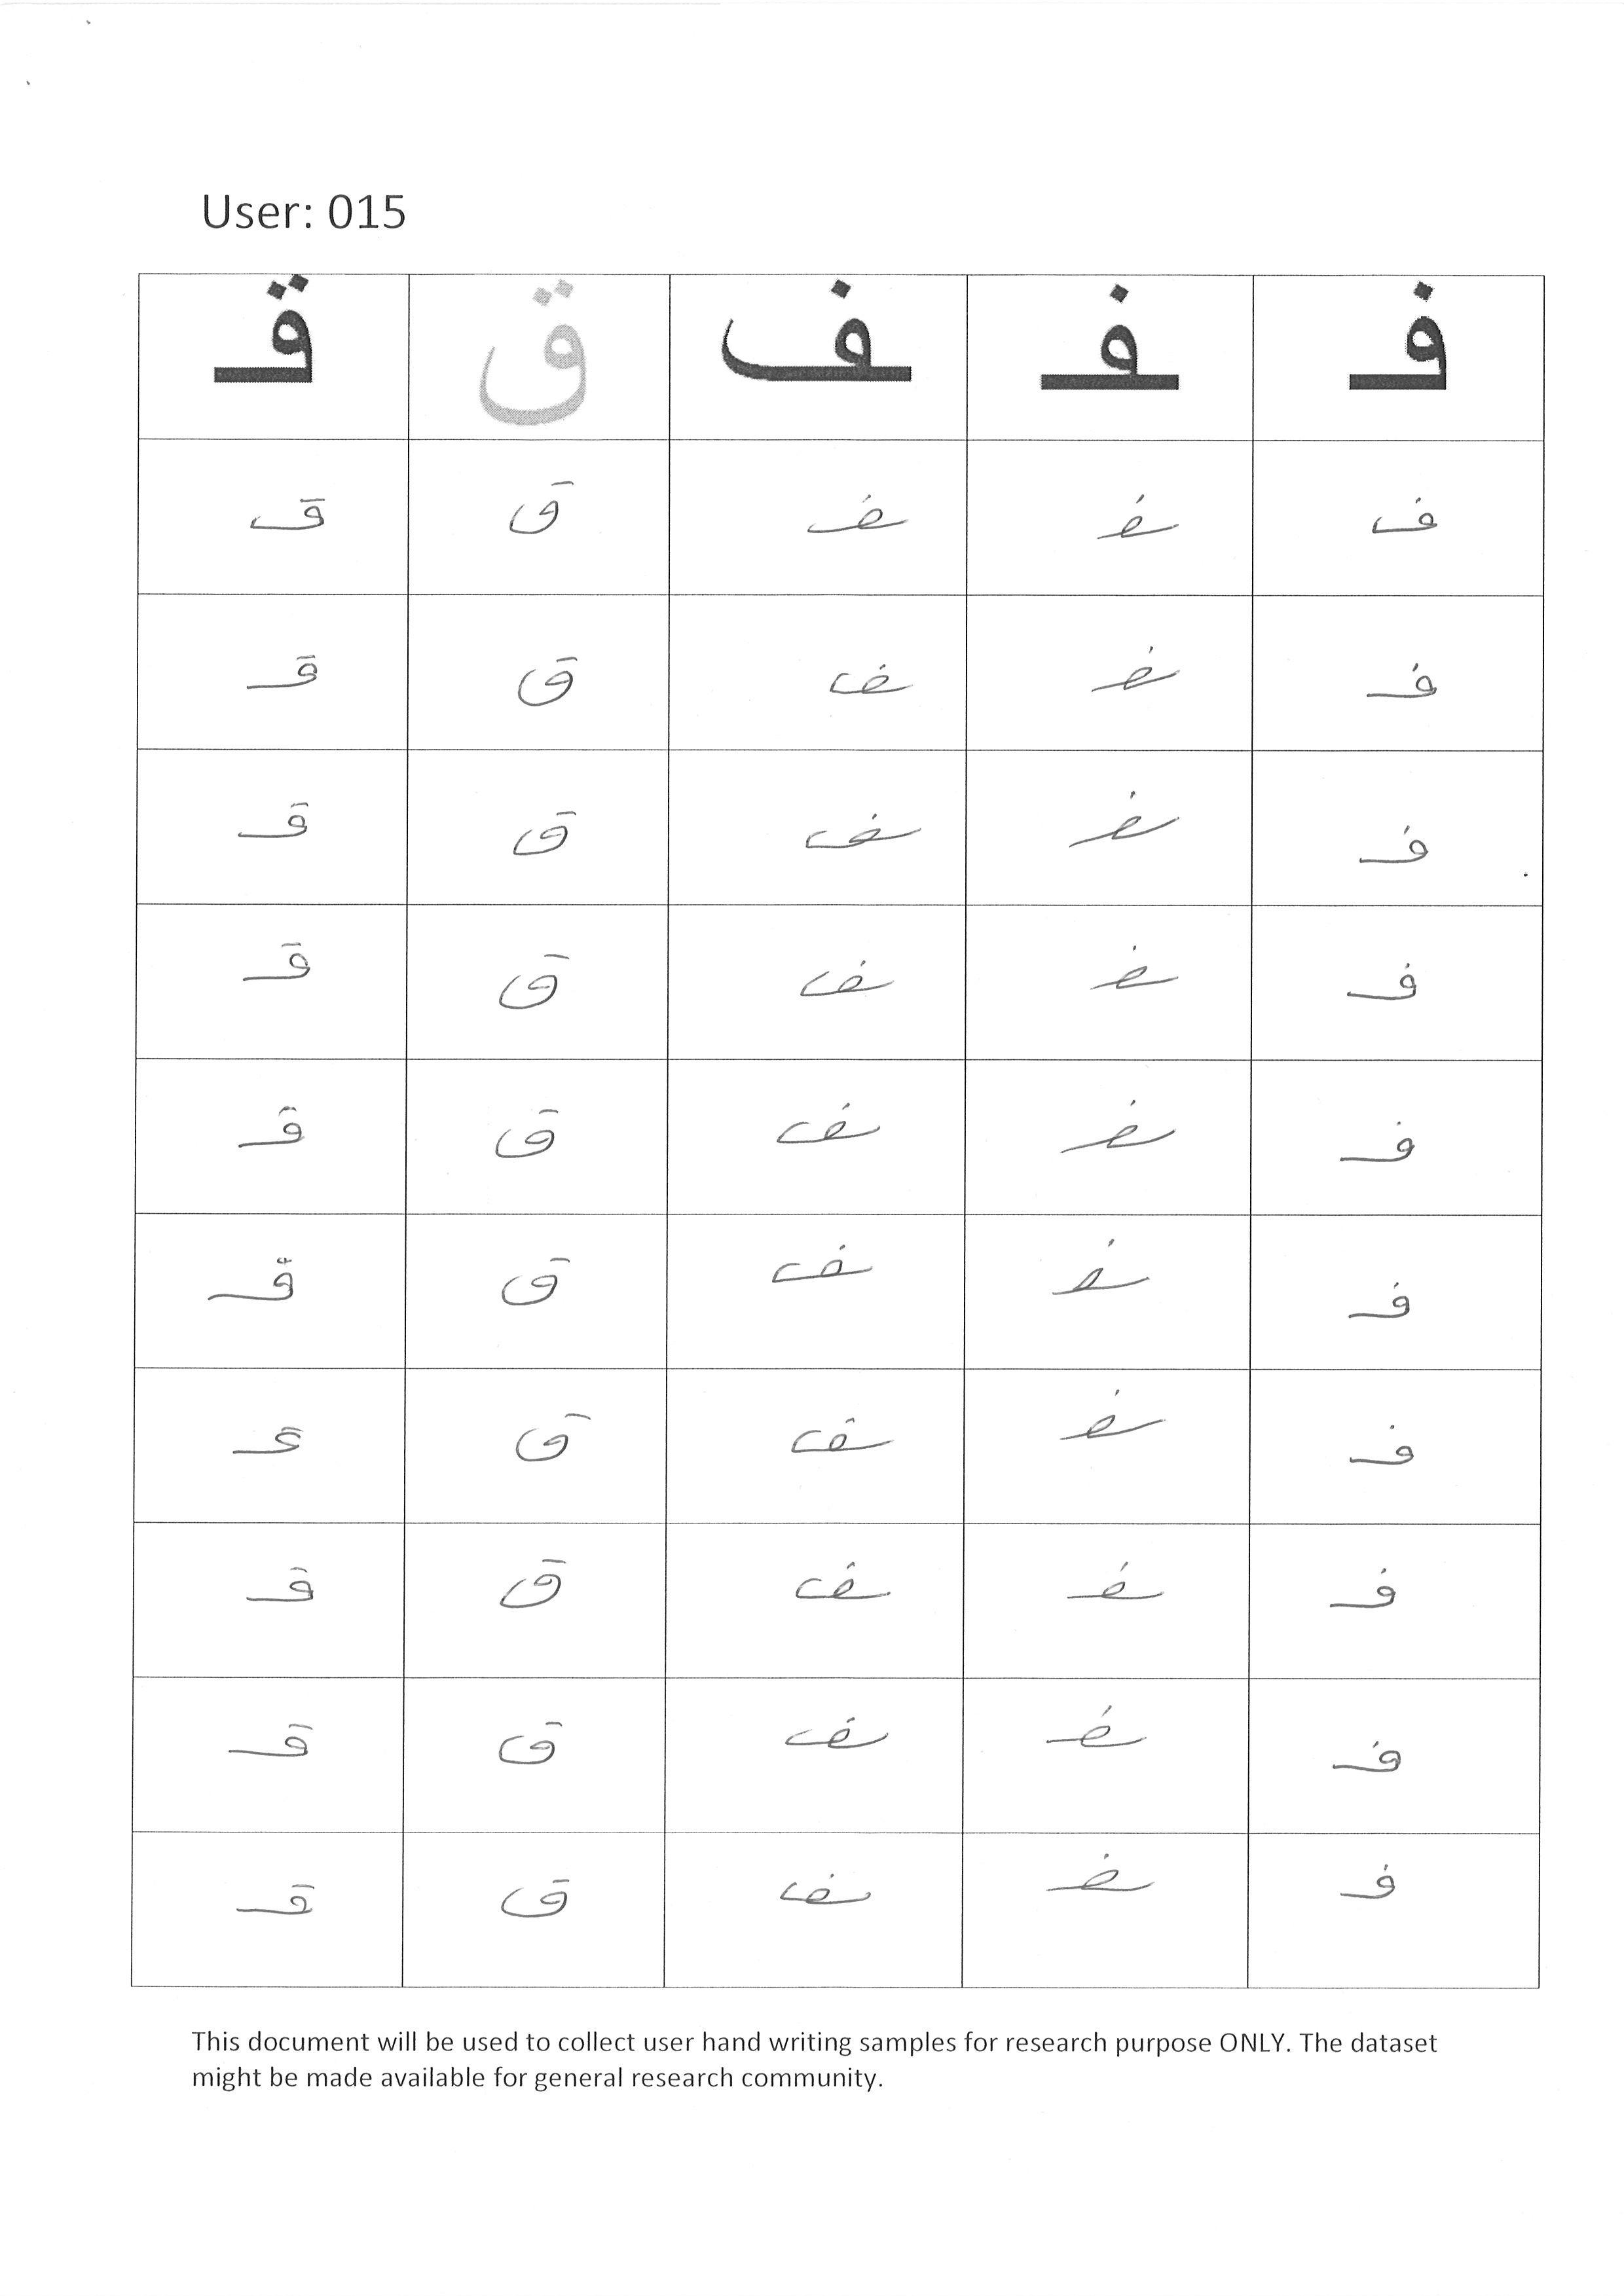 User: 015
فـ ـفـ ـف ق قـ
فـ ـفـ ـف ق قـ
فـ ـفـ ـف ق قـ
فـ ـفـ ـف ق قـ
فـ ـفـ ـف ق قـ
فـ ـفـ ـف ق قـ
فـ ـفـ ـف ق قـ
فـ ـفـ ـف ق قـ
فـ ـفـ ـف ق قـ
فـ ـفـ ـف ق قـ
فـ ـفـ ـف ق قـ
This document will be used to collect user hand writing samples for research purpose ONLY. The dataset
might be made available for general research community.